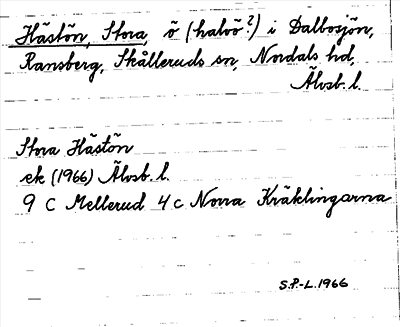 Hästön, Stora ö (halvö?) i Dalbosjön,
Ransberg, Skålleruds sn, Nordals hd,
Älvsb. l.
Stora Hästön
ek (1966) Älvsb. l.
9 C Mellerud 4 c Norra Kräklingarna
S.P.-L. 1966